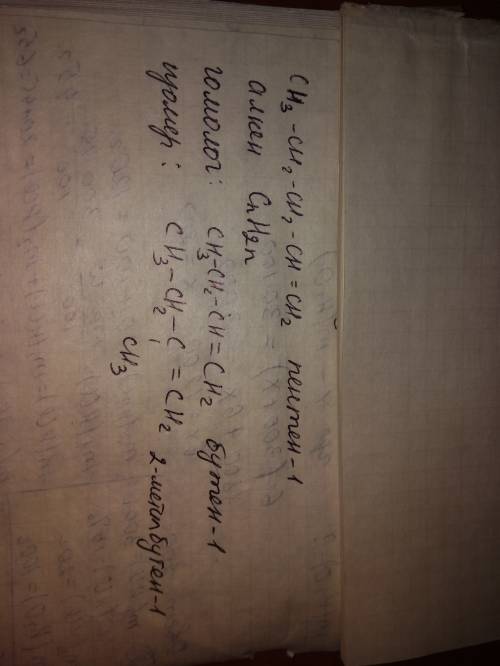 CH₃-CH₂-CH₂-CH=CH₂ пентен-1
алкен CnH2n
гомолог: CH₃-CH₂-CH=CH₂ бутен-1
изомер: CH₃-CH₂-C=CH₂ 2-метилбутен-1
CH₃